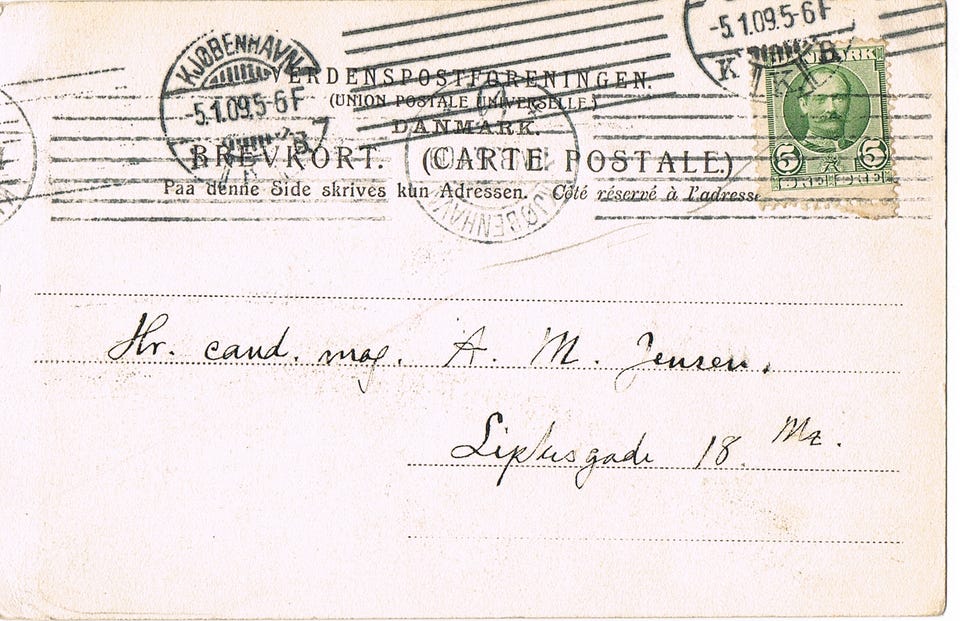 KJØBENHAVN.
-5.1.09.5-6F
-5.1.09.5-6F
K K.B.
VERDENSPOSTFORENINGEN.
(UNION POSTALE UNIVERSELLE.)
DANMARK.
BREVKORT. (CARTE POSTALE.)
Paa denne Side skrives kun Adressen. Côté réservé à l'adresse
5 5
KJØBENHAVN
Hr. cand. mag. A. M. Jensen.
18